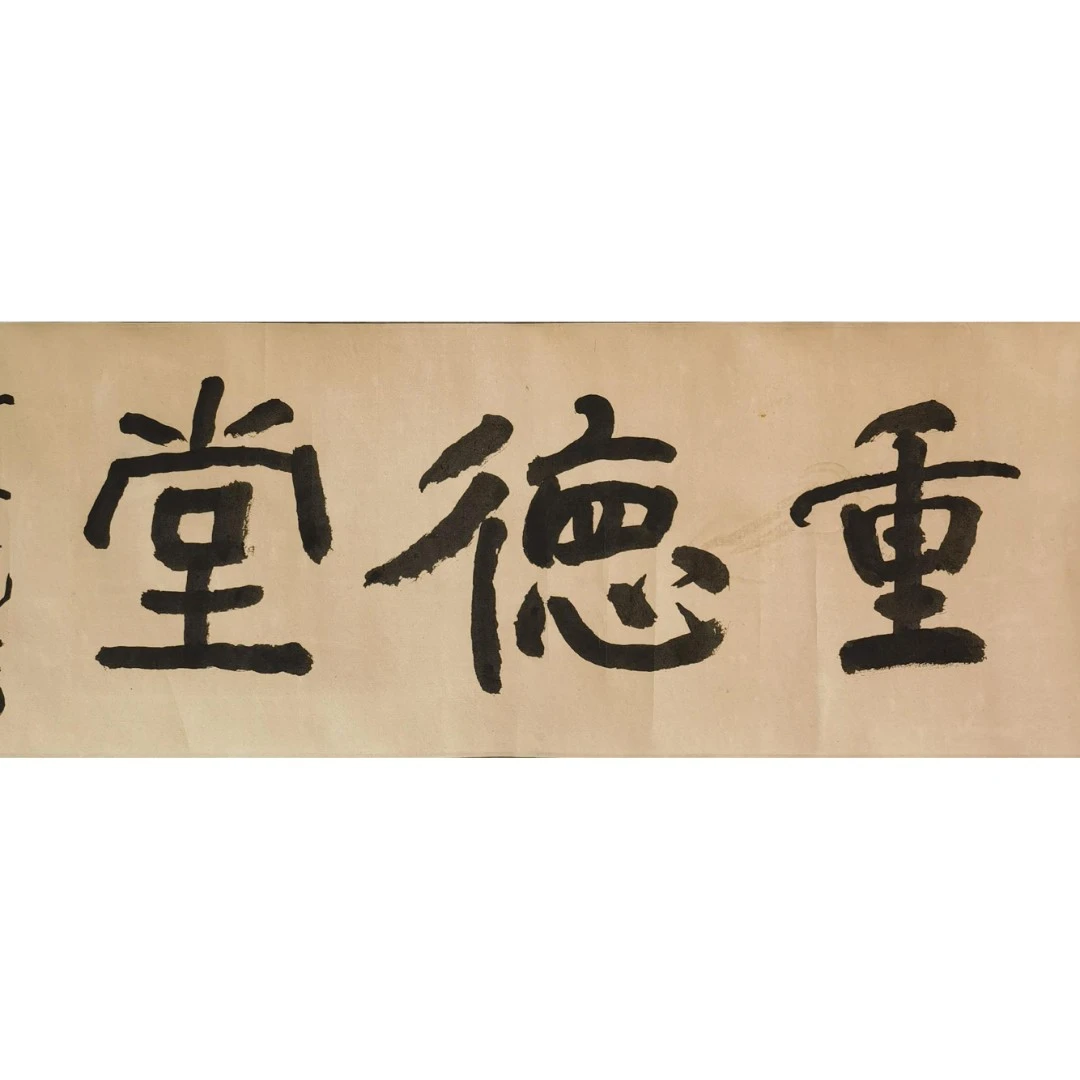 重德堂